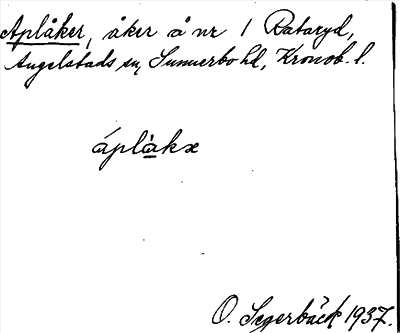 Aplåker, åker å nr 1 Rataryd,
Angelstads sn, Sunnerbo hd, Kronob. l.
áplàkx
O. Segerbäck 1937.